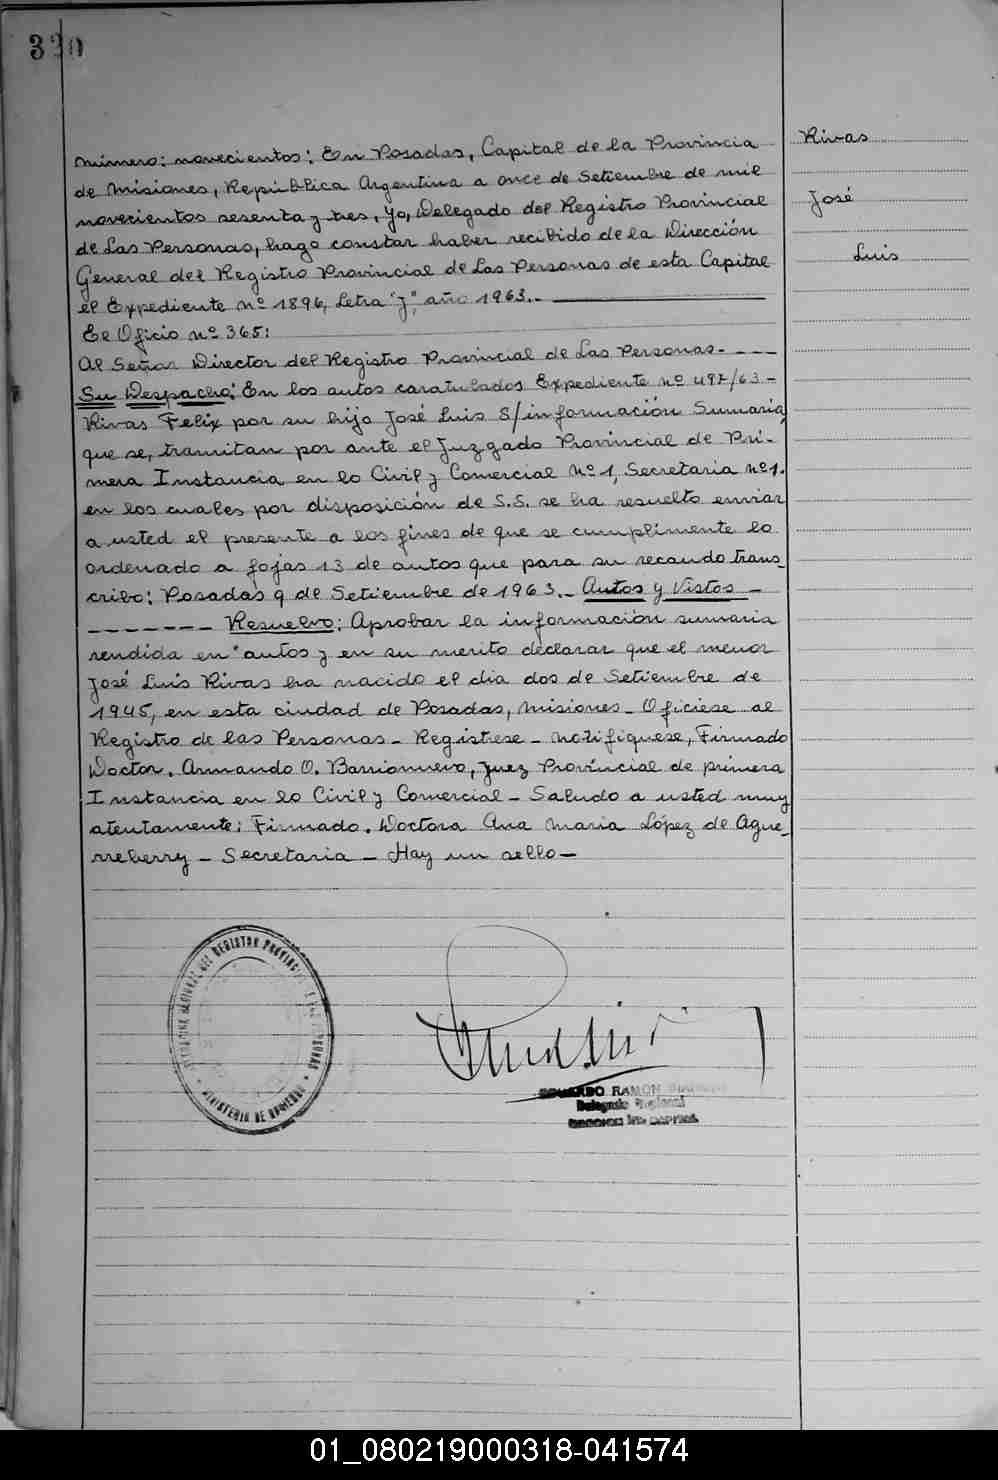 330
Número: novecientos: En Posadas, Capital de la Provincia
de Misiones, República Argentina a once de Setiembre de mil
novecientos sesenta y tres, Yo, Delegado del Registro Provincial
de Las Personas, hago constar haber recibido de la Dirección
General del Registro Provincial de Las Personas de esta Capital
el Expediente nº 1896, Letra "J", año 1963.-
El Oficio nº 365:
Al Señor Director del Registro Provincial de Las Personas. - - -
Su Despacho: En los autos caratulados Expediente nº 497/63 -
Rivas Felix por su hijo José Luis S/información Sumaria,
que se, tramitan por ante el Juzgado Provincial de Pri-
mera Instancia en lo Civil y Comercial Nº 1, Secretaria nº 1.
en los cuales por disposición de S.S. se ha resuelto enviar
a usted el presente a los fines de que se cumplimente lo
ordenado a fojas 13 de autos que para su recaudo trans_
cribo: Posadas 9 de Setiembre de 1963.- Autos y Vistos -
- - - - - - - Resuelvo: Aprobar la información sumaria
rendida en autos y en su merito declarar que el menor
José Luis Rivas ha nacido el dia dos de Setiembre de
1945, en esta ciudad de Posadas, Misiones - Oficiese al
Registro de las Personas - Registrese - Notifiquese, Firmado
Doctor. Armando O. Barrionuevo, Juez Provincial de primera
Instancia en lo Civil y Comercial - Saludo a usted muy
atentamente: Firmado. Doctora Ana Maria López de Ague_
rreberry - Secretaria - Hay un sello -
Rivas
José
Luis
DEL REGISTRO PROVINCIAL DE LAS PERSONAS
MINISTERIO DE GOBIERNO
EDUARDO RAMON
Delegado Regional
01_080219000318-041574